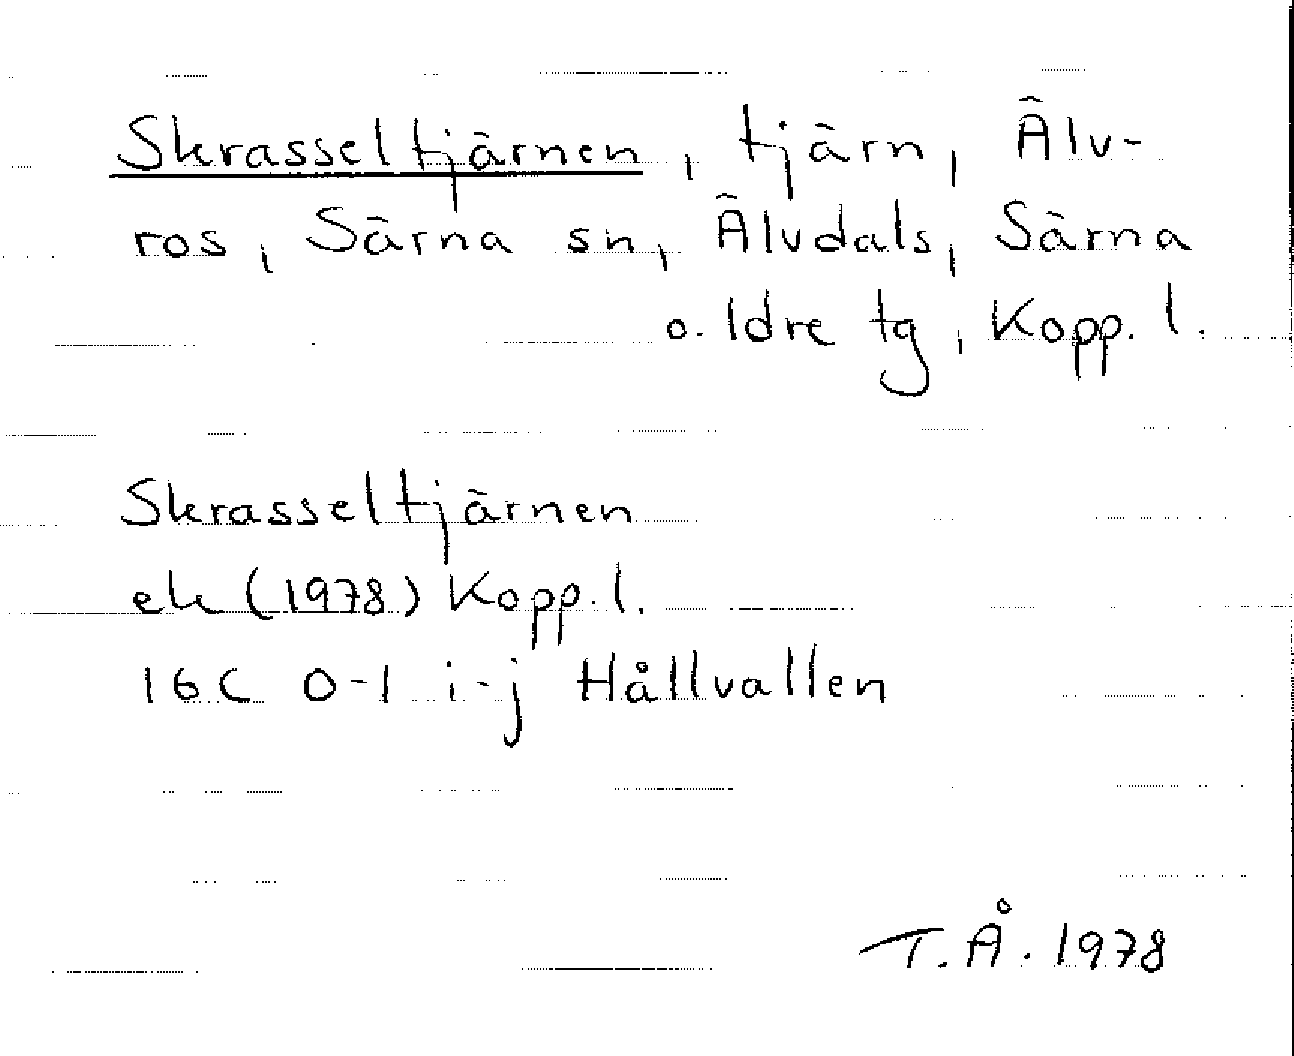 Skrasseltjärnen, tjärn, Älv-
ros, Särna sn, Älvdals, Särna
o. Idre tg, Kopp. l.
Skrasseltjärnen
ek (1978) Kopp. l.
16C 0-1 i-j Hållvallen
T.Å. 1978